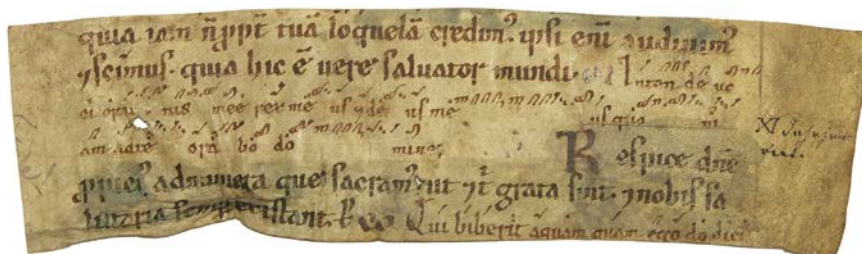 quia iam n̄ ppt̄ tuā loquelā credimꝰ. ipsi eni audiuimꝰ
⁊ scimus. quia hic ē uere saluator mundi. Intende uo
ci orationis mee rex meus ⁊ deus meus quia
am ad te orabo domine.
Respice dn̄e
ppiciꝰ ad munera que sacramꝰ ut ⁊ t̄ grata sint. ⁊ nobis sa
lutaria semper existant.
Qui biberit aquam quam ego do dicit
XI